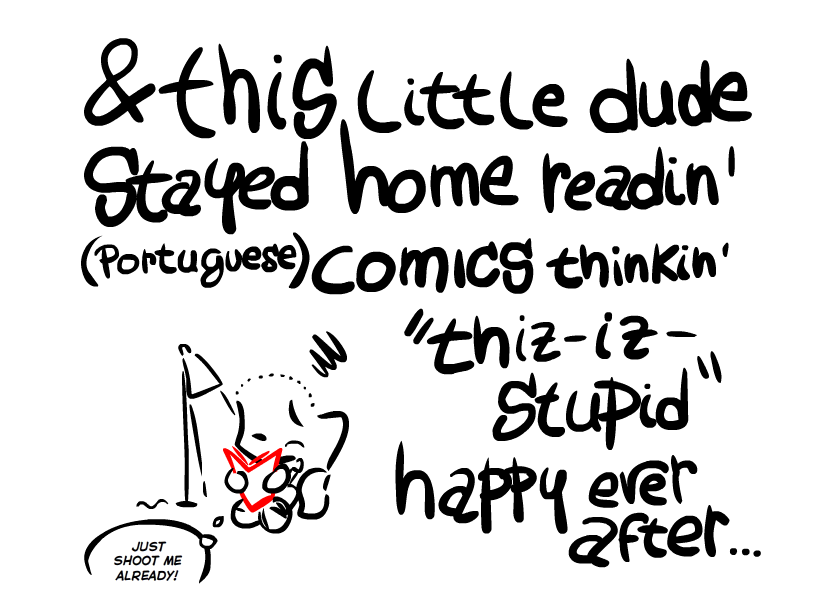 & this Little dude
Stayed home readin'
(Portuguese) COMICS thinkin'
"thiz-iz-
Stupid"
happy ever
after...
JUST
SHOOT ME
ALREADY!